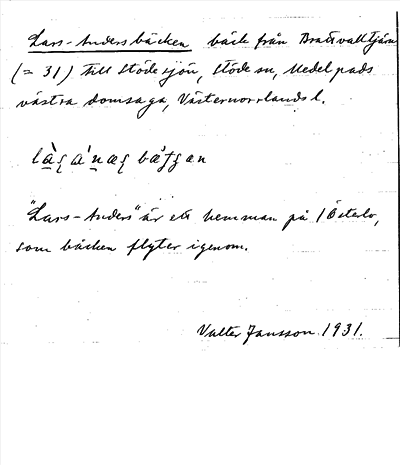 Lars-Andersbäcken bäck från Brattvalltjärn
(= 31) till Stödesjön, Stöde sn, Medelpads
västra domsaga, Västernorrlands l.
"Lars-Anders" är ett hemman på Österlo,
som bäcken flyter igenom.
Valter Jansson 1931.